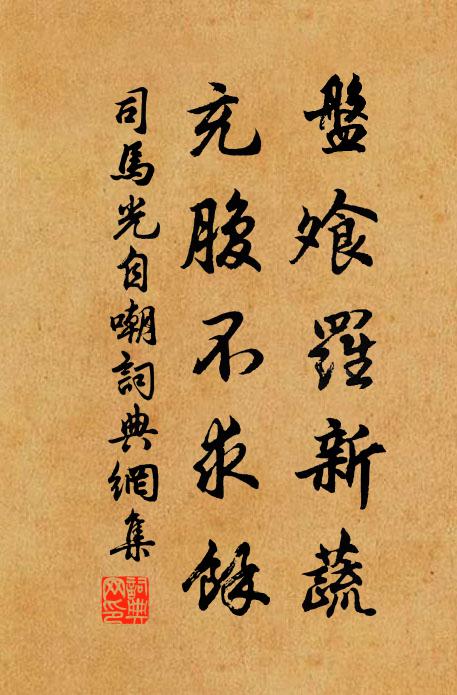 盤飧羅新蔬
充腹不求餘
司馬光自嘲詞典網集
詞典網印